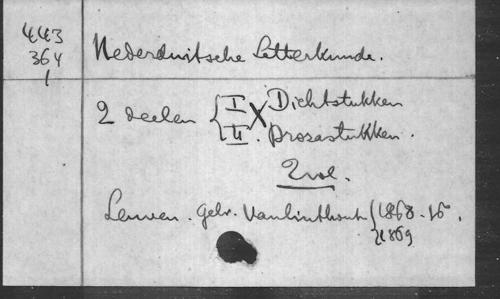 443
364
1
Nederduitsche Letterkunde.
2 deelen { I X Dichtstukken
II. Prozastukken.
2 vol.
Leuven. Gebr. Vanlinthout {1868-16.
1869